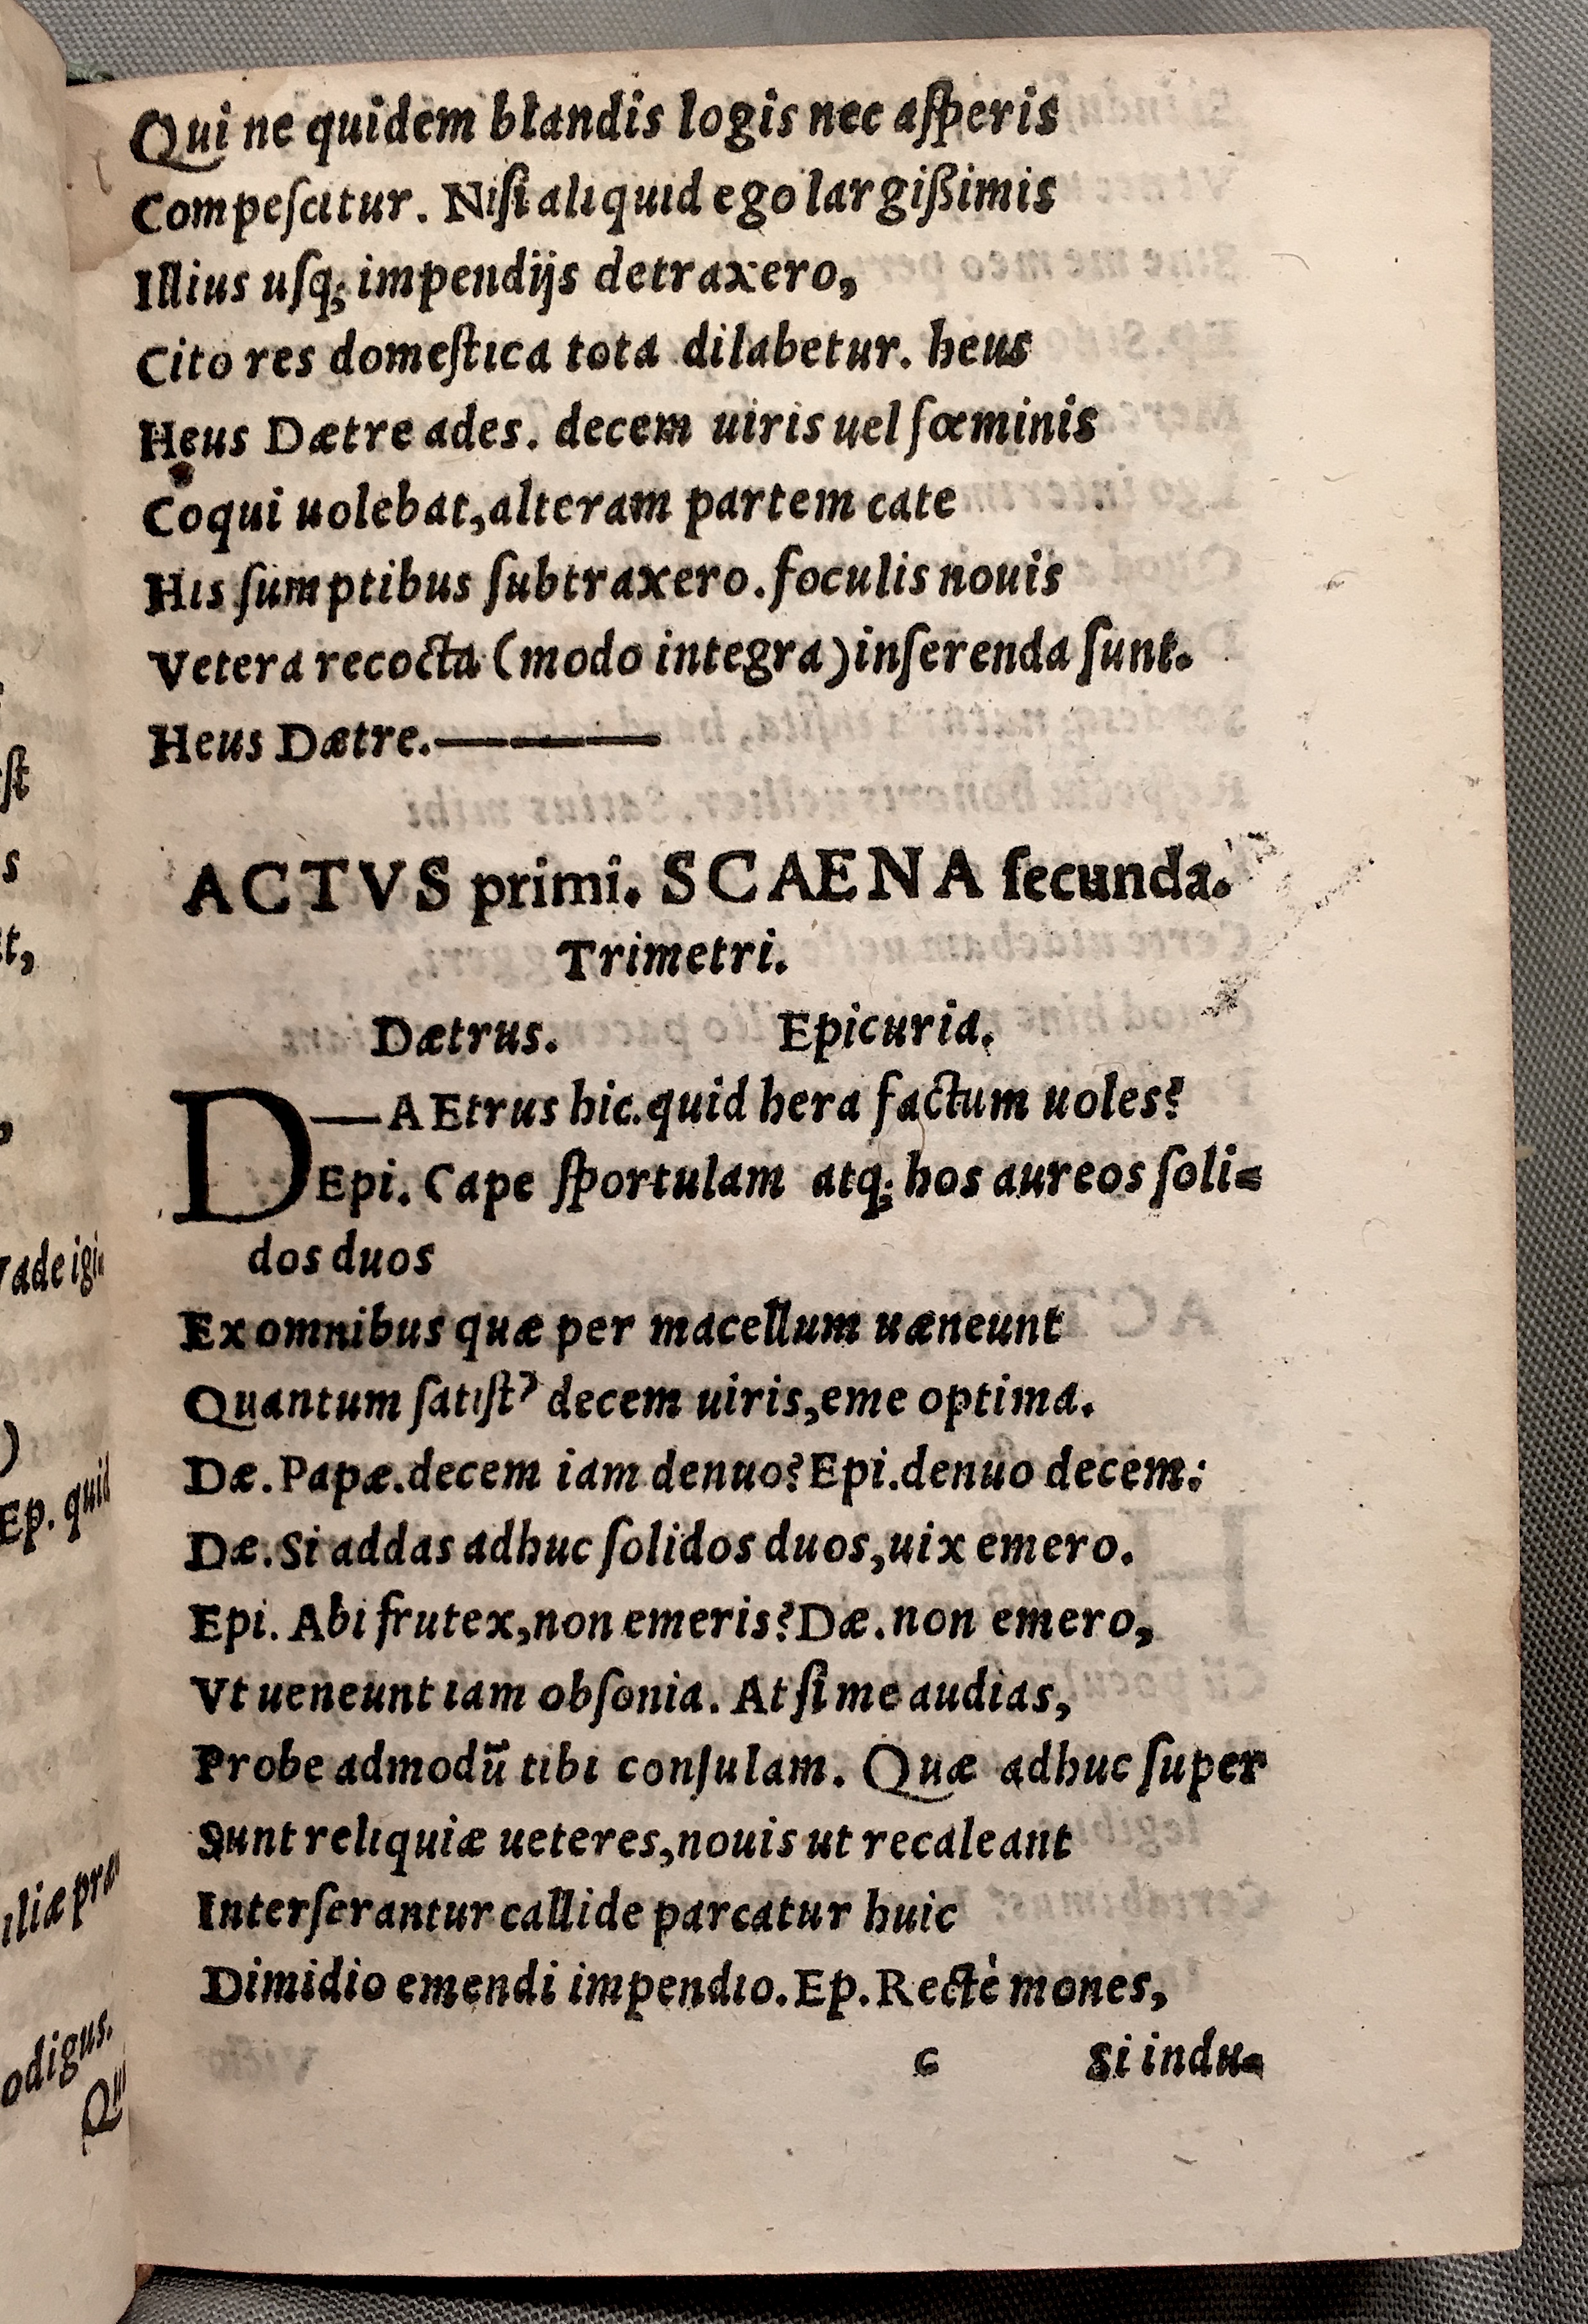 Qui ne quidem blandis logis nec aſperis
Compeſcitur. Niſi aliquid ego largißimis
Illius uſq; impendijs detraxero,
Cito res domeſtica tota dilabetur. heus
Heus Dætre ades. decem uiris uel fœminis
Coqui uolebat, alteram partem cate
His ſumptibus ſubtraxero. foculis nouis
Vetera recocta (modo integra) inſerenda ſunt.
Heus Dætre.———
ACTVS primi. SCAENA ſecunda.
Trimetri.
Dætrus. Epicuria.
D—AEtrus hic. quid hera factum uoles?
Epi. Cape ſportulam atq; hos aureos ſoli=
dos duos
Ex omnibus quæ per macellum uæneunt
Quantum ſatiſt' decem uiris, eme optima.
Dæ. Papæ. decem iam denuo? Epi. denuo decem:
Dæ. Si addas adhuc ſolidos duos, uix emero.
Epi. Abi frutex, non emeris? Dæ. non emero,
Vt ueneunt iam obſonia. At ſi me audias,
Probe admodū tibi conſulam. Quæ adhuc ſuper
Sunt reliquiæ ueteres, nouis ut recaleant
Interſerantur callide parcatur huic
Dimidio emendi impendio. Ep. Rectè mones,
c Si indu=